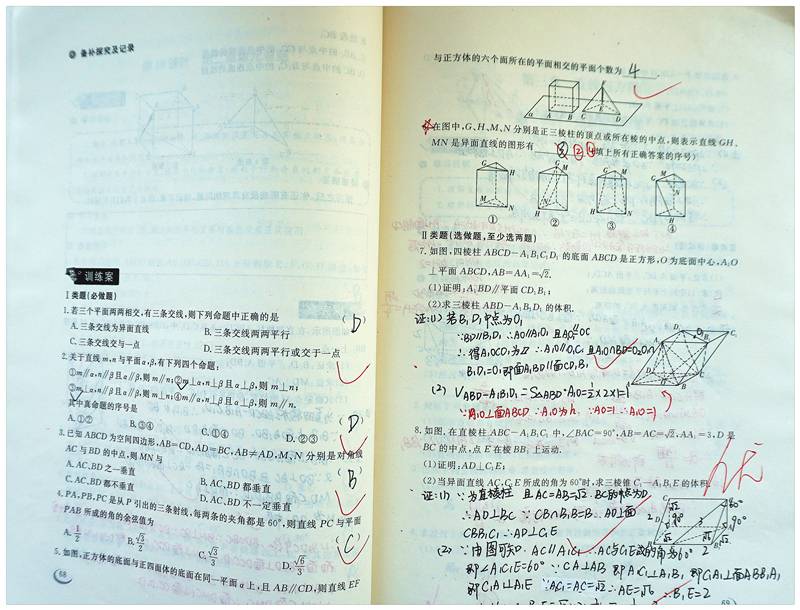 备补探究及记录
训练案
Ⅰ类题(必做题)
1.若三个平面两两相交,有三条交线,则下列命题中正确的是 ( D )
A.三条交线为异面直线 B.三条交线两两平行
C.三条交线交与一点 D.三条交线两两平行或交于一点
2.关于直线m,n与平面α,β,有下列四个命题:
①m∥α,n∥β且α∥β,则m∥n;②m⊥α,n⊥β且α⊥β,则m⊥n;
③m⊥α,n∥β且α∥β,则m⊥n;④m∥α,n⊥β且α⊥β,则m∥n.
其中真命题的序号是 ( D )
A.①② B.③④ C.①④ D.②③
3.已知ABCD为空间四边形,AB=CD,AD=BC,AB≠AD,M、N分别是对角线
AC与BD的中点,则MN与 ( B )
A.AC,BD之一垂直 B.AC,BD都垂直
C.AC,BD都不垂直 D.AC,BD不一定垂直
4.PA,PB,PC是从P引出的三条射线,每两条的夹角都是60°,则直线PC与平面
PAB所成的角的余弦值为 ( C )
A.1/2 B.√3/2 C.√3/3 D.√6/3
5.如图,正方体的底面与正四面体的底面在同一平面α上,且AB∥CD,则直线EF
68
与正方体的六个面所在的平面相交的平面个数为 4
α A B C D E F
在图中,G、H、M、N分别是正三棱柱的顶点或所在棱的中点,则表示直线GH、
MN是异面直线的图形有 ②④ 填上所有正确答案的序号)
① ② ③ ④
Ⅱ类题(选做题,至少选两题)
7.如图,四棱柱ABCD-A₁B₁C₁D₁的底面ABCD是正方形,O为底面中心,A₁O
⊥平面ABCD,AB=AA₁=√2.
(1)证明:A₁BD∥平面CD₁B₁;
(2)求三棱柱ABD-A₁B₁D₁的体积.
证:(1) 若B₁D₁中点为O₁
∵BD∥B₁D₁ ∴AO∥A₁O₁ 且A₁O₁∥OC
∴得A₁OCO₁为▱ ∴A₁O∥O₁C 且A₁O∩BD=O,O₁C∩
B₁D₁=O₁ 即面A₁BD∥面CD₁B₁
(2) V ABD-A₁B₁D₁=S△ABD·A₁O=1/2×2×1=1
∵A₁O⊥面ABCD ∴A₁O为h ∴AO=1 ∴A₁O=1
8.如图,在直棱柱ABC-A₁B₁C₁中,∠BAC=90°,AB=AC=√2,AA₁=3,D是
BC的中点,点E在棱BB₁上运动.
(1)证明:AD⊥C₁E;
(2)当异面直线AC,C₁E所成的角为60°时,求三棱锥C₁-A₁B₁E的体积.
证:(1) ∵为直棱柱 且AC=AB=√2 BC的中点为D
∴AD⊥BC ∵CB∩B₁B=B ∴AD⊥面
CBB₁C₁ ∴AD⊥C₁E
(2) ∵由图可知 AC∥A₁C₁ ∴AC与C₁E所成的角为60°
即∠A₁C₁E=60° ∵CA⊥AB 即A₁C₁⊥A₁B₁ 即C₁A₁⊥面ABB₁A₁
即C₁A₁⊥A₁E ∵A₁C₁=AC=√2 ∴A₁E=√6 ∴B₁E=2